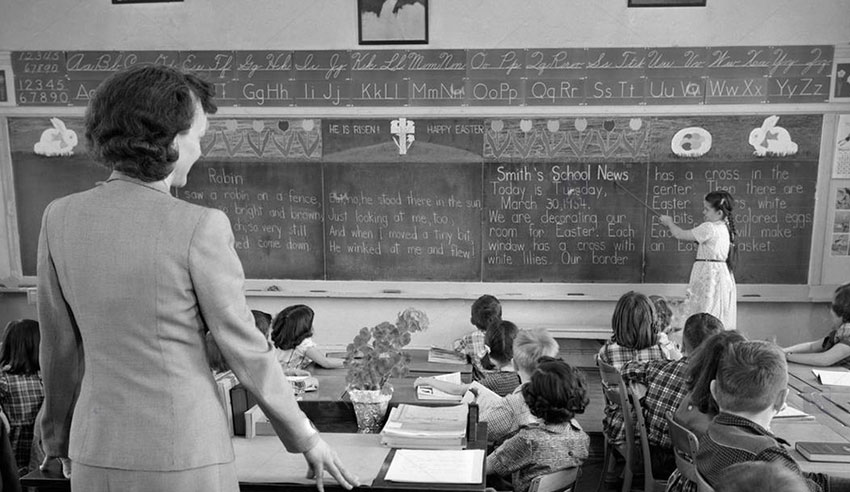 1 2 3 4 5
6 7 8 9 0
Aa Bb Cc Dd Ee Ff Gg Hh Ii Jj Kk Ll Mm Nn Oo Pp Qq Rr Ss Tt Uu Vv Ww Xx Yy Zz
1 2 3 4 5
6 7 8 9 0
Gg Hh Ii Jj Kk Ll Mm Nn Oo Pp Qq Rr Ss Tt Uu Vv Ww Xx Yy Zz
HE IS RISEN! HAPPY EASTER
Robin
saw a robin on a fence,
bright and brown,
so very still
come down.
he stood there in the sun
Just looking at me, too.
And when I moved a tiny bit,
He winked at me and flew!
Smith's School News
Today is Tuesday,
March 30, 1954.
We are decorating our
room for Easter. Each
window has a cross with
white lilies. Our border
has a cross in the
center. Then there are
white
colored eggs.
will make
an Easter basket.